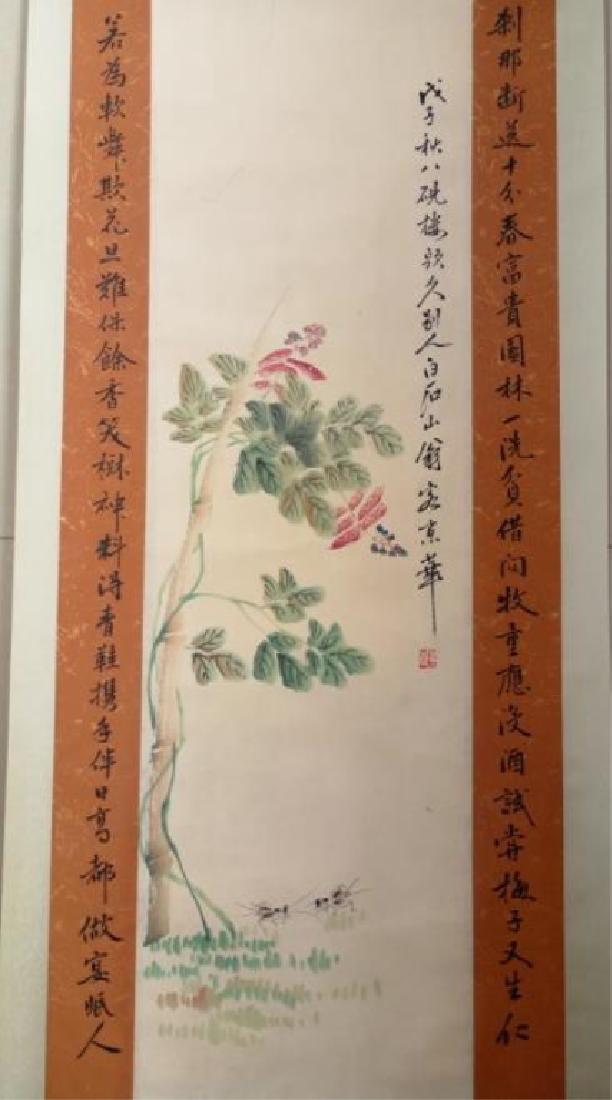 刹那断送十分春富貴園林一洗貧借问牧童應没酒試嘗梅子又生仁
戊子秋八硯樓頭久别人白石山翁客京華
若為軟舞欺花旦難保餘香笑樹神料得青鞋携手伴日高都做宴眠人